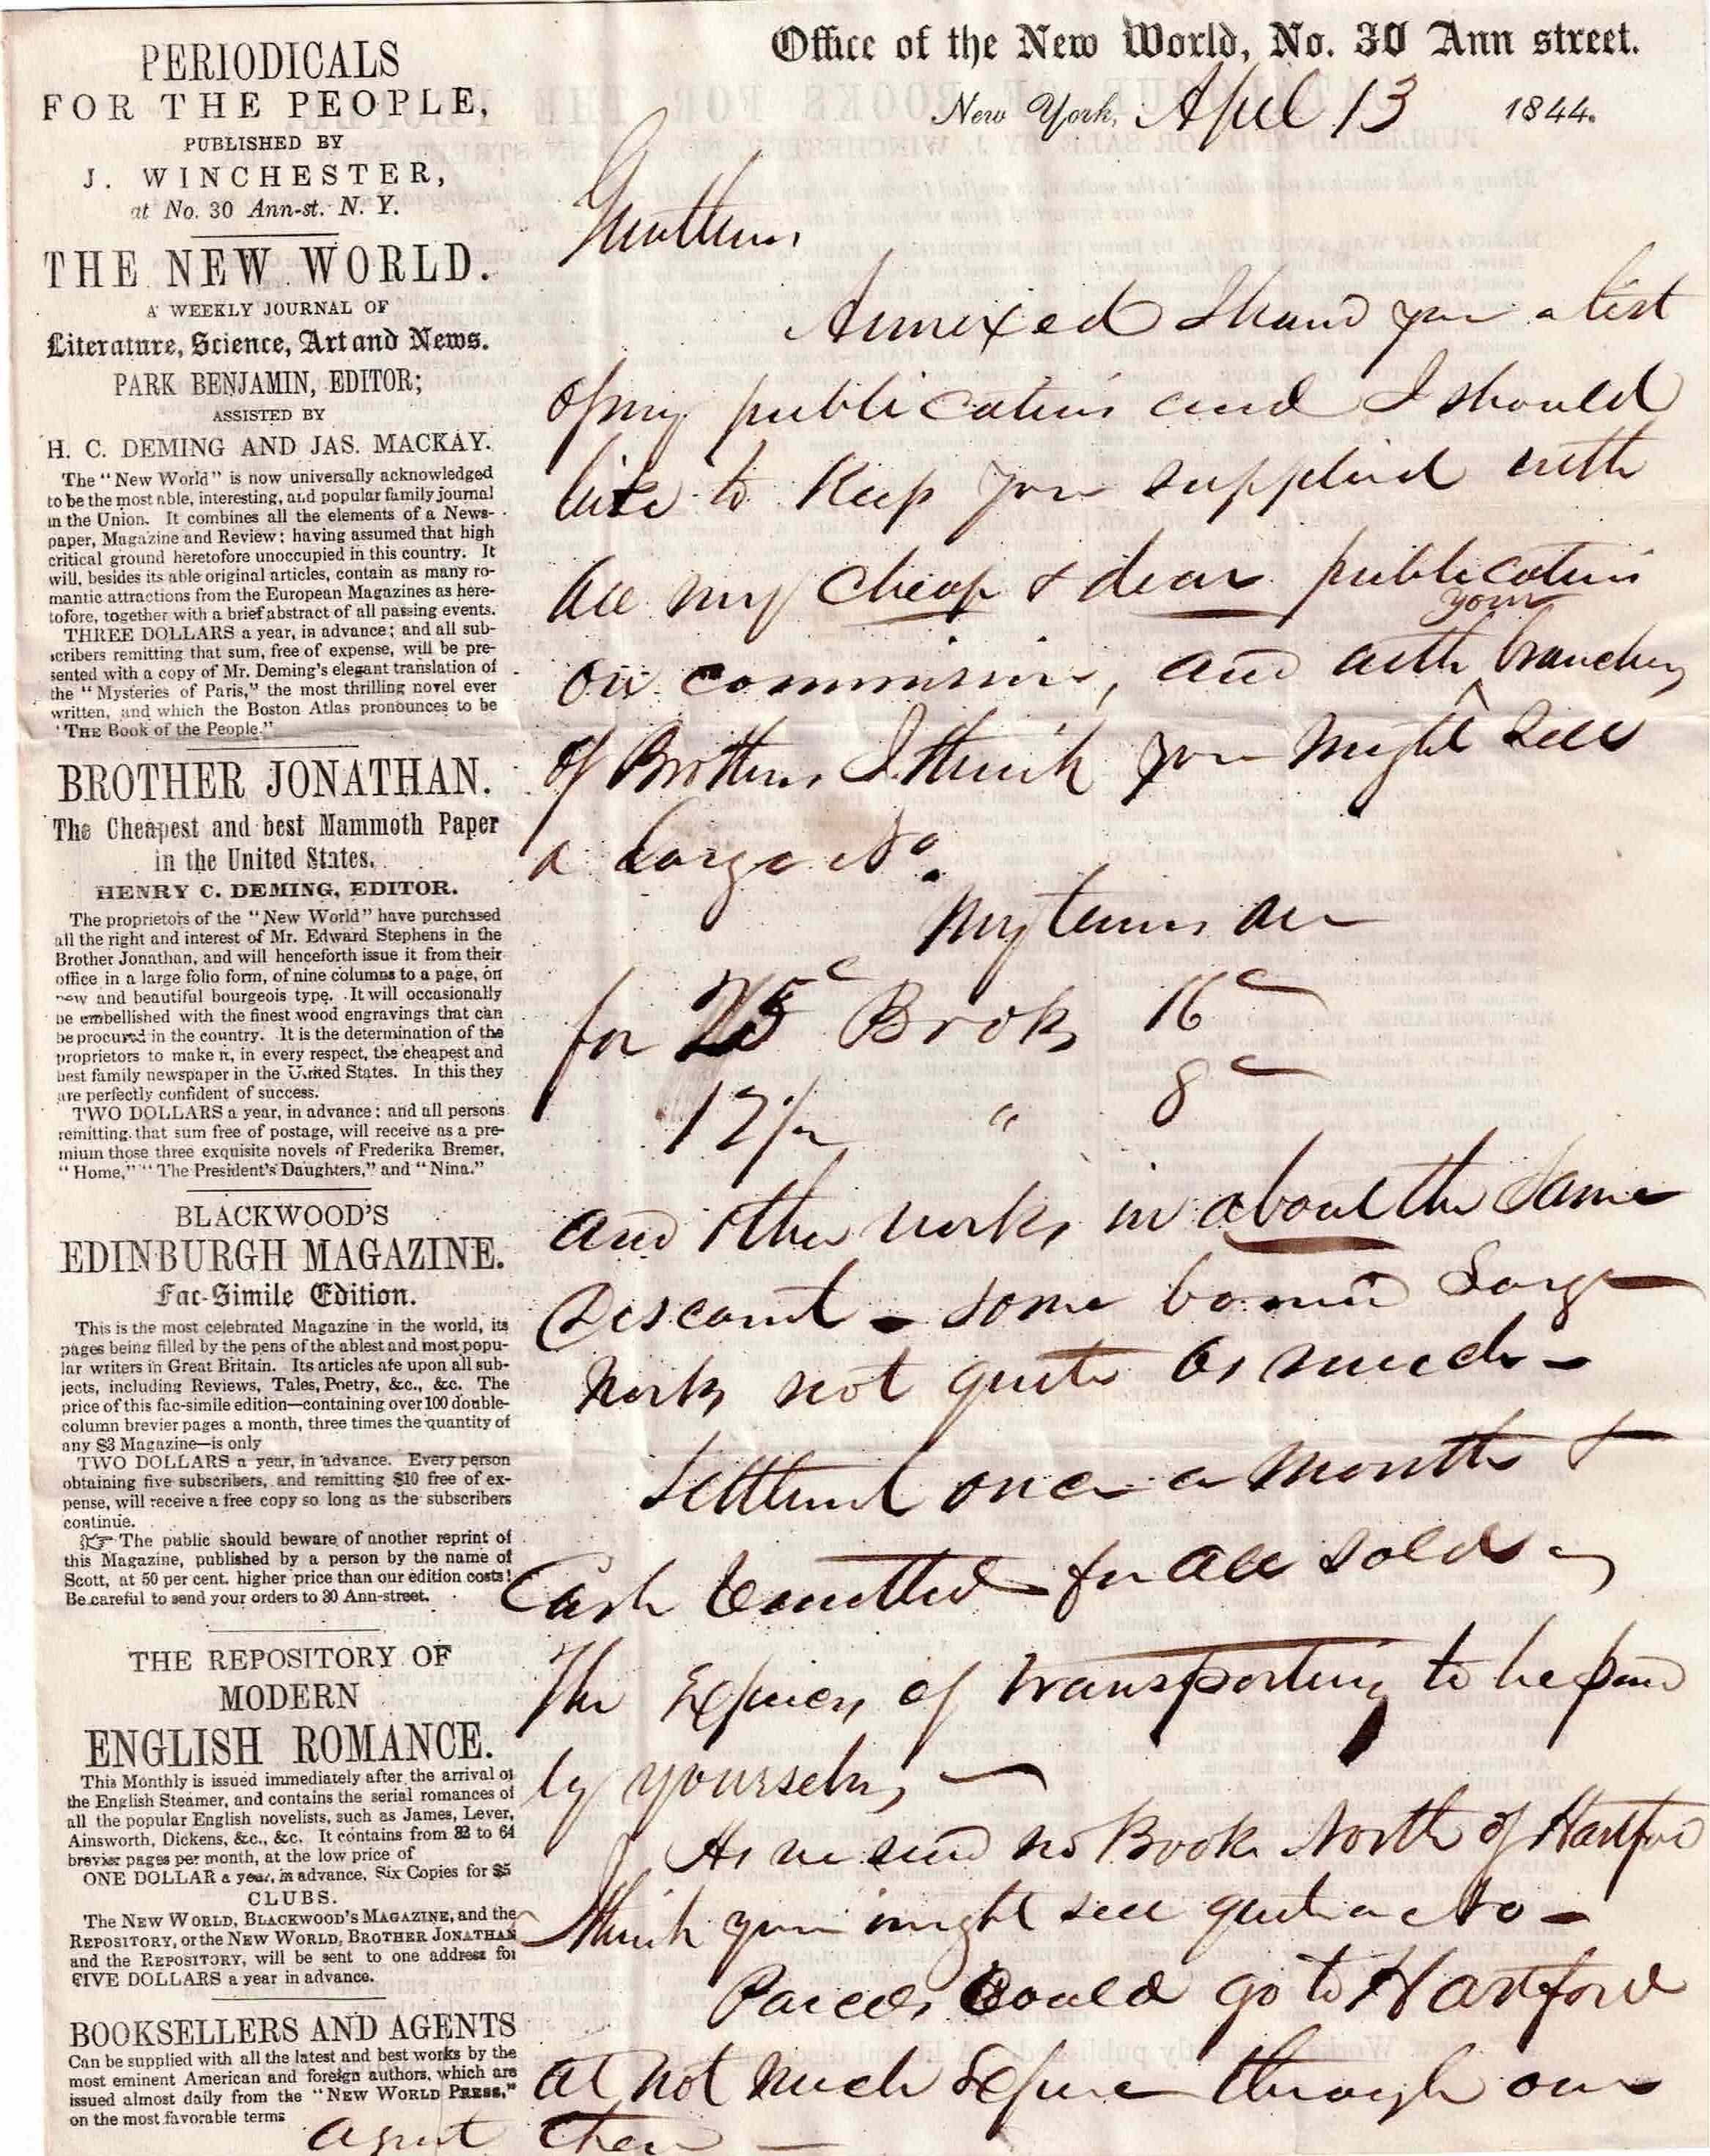 PERIODICALS
FOR THE PEOPLE,
PUBLISHED BY
J. WINCHESTER,
at No. 30 Ann-st. N. Y.
THE NEW WORLD.
A WEEKLY JOURNAL OF
Literature, Science, Art and News.
PARK BENJAMIN, EDITOR;
ASSISTED BY
H. C. DEMING AND JAS. MACKAY.
The "New World" is now universally acknowledged
to be the most able, interesting, and popular family journal
in the Union. It combines all the elements of a News-
paper, Magazine and Review; having assumed that high
critical ground heretofore unoccupied in this country. It
will, besides its able original articles, contain as many ro-
mantic attractions from the European Magazines as here-
tofore, together with a brief abstract of all passing events.
THREE DOLLARS a year, in advance; and all sub-
scribers remitting that sum, free of expense, will be pre-
sented with a copy of Mr. Deming's elegant translation of
the "Mysteries of Paris," the most thrilling novel ever
written, and which the Boston Atlas pronounces to be
'THE Book of the People."
BROTHER JONATHAN.
The Cheapest and best Mammoth Paper
in the United States.
HENRY C. DEMING, EDITOR.
The proprietors of the "New World" have purchased
all the right and interest of Mr. Edward Stephens in the
Brother Jonathan, and will henceforth issue it from their
office in a large folio form, of nine columns to a page, on
new and beautiful bourgeois type. It will occasionally
be embellished with the finest wood engravings that can
be procured in the country. It is the determination of the
proprietors to make it, in every respect, the cheapest and
best family newspaper in the United States. In this they
are perfectly confident of success.
TWO DOLLARS a year, in advance; and all persons
remitting that sum free of postage, will receive as a pre-
mium those three exquisite novels of Frederika Bremer,
"Home," "The President's Daughters," and "Nina."
BLACKWOOD'S
EDINBURGH MAGAZINE.
Fac-Simile Edition.
This is the most celebrated Magazine in the world, its
pages being filled by the pens of the ablest and most popu-
lar writers in Great Britain. Its articles are upon all sub-
jects, including Reviews, Tales, Poetry, &c., &c. The
price of this fac-simile edition—containing over 100 double-
column brevier pages a month, three times the quantity of
any $3 Magazine—is only
TWO DOLLARS a year, in advance. Every person
obtaining five subscribers, and remitting $10 free of ex-
pense, will receive a free copy so long as the subscribers
continue.
☞ The public should beware of another reprint of
this Magazine, published by a person by the name of
Scott, at 50 per cent. higher price than our edition costs!
Be careful to send your orders to 30 Ann-street.
THE REPOSITORY OF
MODERN
ENGLISH ROMANCE.
This Monthly is issued immediately after the arrival of
the English Steamer, and contains the serial romances of
all the popular English novelists, such as James, Lever,
Ainsworth, Dickens, &c., &c. It contains from 32 to 64
brevier pages per month, at the low price of
ONE DOLLAR a year, in advance, Six Copies for $5
CLUBS.
The NEW WORLD, BLACKWOOD'S MAGAZINE, and the
REPOSITORY, or the NEW WORLD, BROTHER JONATHAN
and the REPOSITORY, will be sent to one address for
FIVE DOLLARS a year in advance.
BOOKSELLERS AND AGENTS
Can be supplied with all the latest and best works by the
most eminent American and foreign authors, which are
issued almost daily from the "NEW WORLD PRESS,"
on the most favorable terms
Office of the New World, No. 30 Ann street.
New York, April 13 1844.
Gentlemen,
Annexed I hand you a list
of my publications and I should
like to keep you supplied with
all my cheap & dear publications
on commission, and with your branches
of Brothers I think you might sell
a large No.
My terms are
for 25c Books 16c
12½ " 8c
and other works in about the same
Discount - some bound large
works not quite as much -
Settlement once a month &
Cash remitted for all sold -
The Expenses of transporting to be paid
by yourselves
As we send no Books North of Hartford
think you might sell quite a No -
Parcels could go to Hartford
at not much Expense through our
agent there -